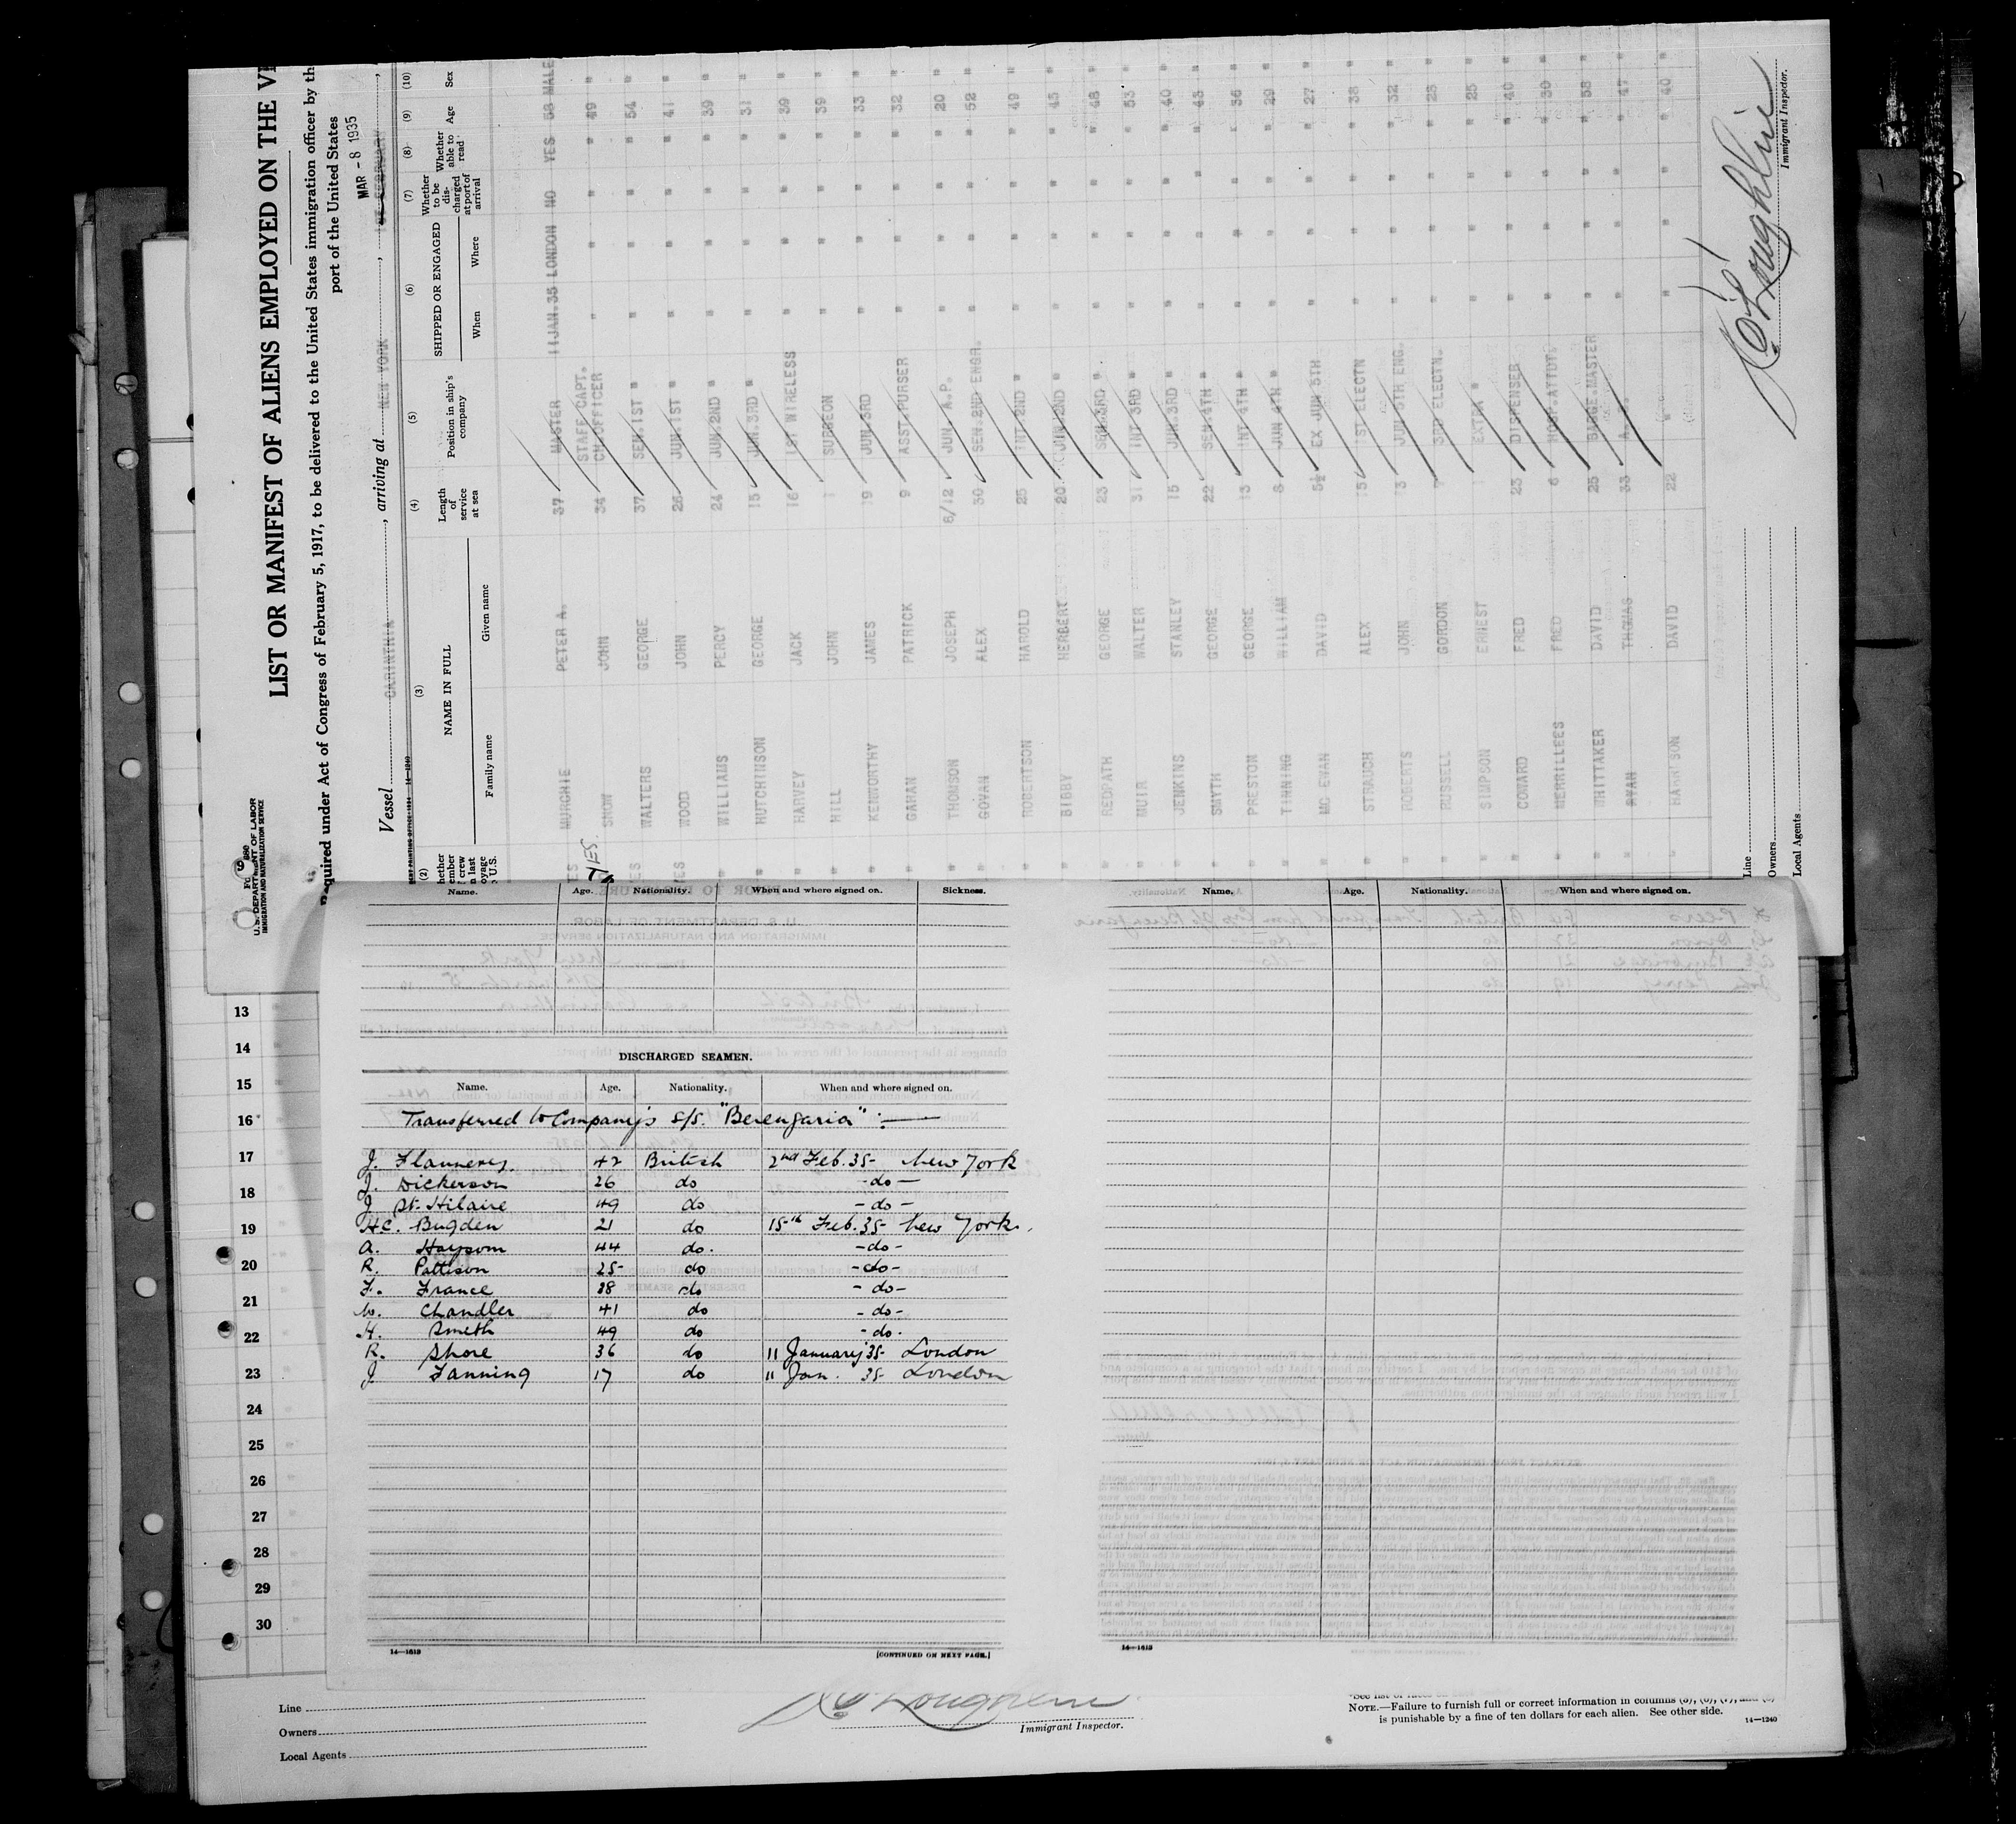 LIST OR MANIFEST OF ALIENS EMPLOYED ON THE
equired under Act of Congress of February 5, 1917, to be delivered to the United States immigration officer by th
port of the United States
MAR - 8 1935
Vessel CARINTHIA, arriving at NEW YORK,
U. S. DEPARTMENT OF LABOR
IMMIGRATION AND NATURALIZATION SERVICE
(2) (3) (4) (5) (6) (7) (8) (9) (10)
NAME IN FULL
Family name Given name
Length of service at sea
Position in ship's company
SHIPPED OR ENGAGED
When Where
Whether to be dis-charged at port of arrival
Whether able to read
Age
Sex
MURCHIE PETER A. 37 MASTER 11 JAN.35 LONDON NO YES 58 MALE
YES SNOW JOHN 34 STAFF CAPT. CH.OFFICER " " " " 49 "
WALTERS GEORGE 37 SEN.1ST " " " " " 54 "
WOOD JOHN 26 JUN.1ST " " " " " 41 "
WILLIAMS PERCY 24 JUN.2ND " " " " " 39 "
HUTCHINSON GEORGE 15 JUN.3RD " " " " " 31 "
HARVEY JACK 16 1ST WIRELESS " " " " 39 "
HILL JOHN 1 SURGEON " " " " 39 "
KENWORTHY JAMES 19 JUN.3RD " " " " 33 "
GAHAN PATRICK 9 ASST.PURSER " " " " 32 "
THOMSON JOSEPH 6/12 JUN. A.P. " " " " 20 "
GOVAN ALEX 30 SEN.2ND ENGR. " " " " 52 "
ROBERTSON HAROLD 25 INT.2ND " " " " " 49 "
BIBBY HERBERT 20 JUN.2ND " " " " " 43 "
REDPATH GEORGE 23 SEN.3RD " " " " " 48 "
MUIR WALTER 31 INT.3RD " " " " " 53 "
JENKINS STANLEY 15 JUN.3RD " " " " " 40 "
SMYTH GEORGE 22 SEN.4TH " " " " " 43 "
PRESTON GEORGE 13 INT.4TH " " " " " 36 "
TINNING WILLIAM 8 JUN 4TH " " " " " 29 "
MC EWAN DAVID 5½ EX JUN 5TH " " " " 27 "
STRAUCH ALEX 15 1ST ELECTN " " " " 38 "
ROBERTS JOHN 13 JUN 5TH ENG. " " " " 32 "
RUSSELL GORDON 7 3RD ELECTN. " " " " 28 "
SIMPSON ERNEST 1 EXTRA " " " " " 25 "
COWARD FRED 23 DISPENSER " " " " 40 "
MERRILEES FRED 6 HOSP.ATTDT. " " " " 30 "
WHITTAKER DAVID 25 BAGGE.MASTER " " " " 58 "
RYAN THOMAS 33 " " " " 47 "
HARRISON DAVID 22 " " " " " 40 "
Immigrant Inspector.
Line
Owners
Local Agents
Name. Age. Nationality. When and where signed on. Sickness.
Name. Age. Nationality. When and where signed on.
DISCHARGED SEAMEN.
Name. Age. Nationality. When and where signed on.
Transferred to Company's s/s. "Berengaria" :—
J. Flannery. 42 British 2nd Feb. 35- New York
J. Dickerson 26 do - do -
J St. Hilaire 49 do - do -
H.C. Bugden 21 do 15th Feb. 35- New York.
A. Haysom 44 do. - do -
R. Pattison 25- do - do -
F. France 38 do - do -
W. Chandler 41 do - do -
H. Smith 49 do - do.
R. Shore 36 do 11 January 35- London
J Fanning 17 do 11 Jan. 35- London
14—1613
[CONTINUED ON NEXT PAGE.]
14—1613
13
14
15
16
17
18
19
20
21
22
23
24
25
26
27
28
29
30
Line
Owners
Local Agents
Immigrant Inspector.
NOTE.—Failure to furnish full or correct information in columns
is punishable by a fine of ten dollars for each alien. See other side.
14—1240